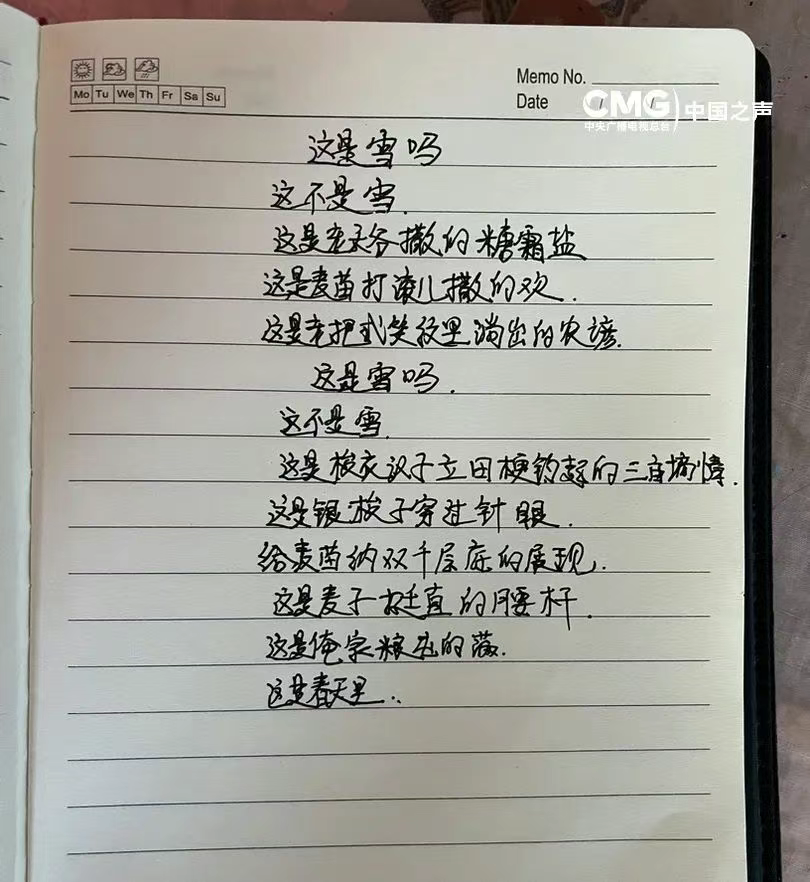 Memo No.
Mo Tu We Th Fr Sa Su
Date / /
CMG 中国之声
中央广播电视总台
这是雪吗
这不是雪.
这是老天爷撒的糖霜盐
这是麦苗打滚儿撒的欢.
这是老把式笑纹里淌出的农谚.
这是雪吗.
这不是雪.
这是 子立田梗 的三 墒情.
这是银梭子穿过针眼.
给麦苗纳双千层底的展现.
这是麦子挺直的腰杆.
这是俺家粮 的
这是春天里..